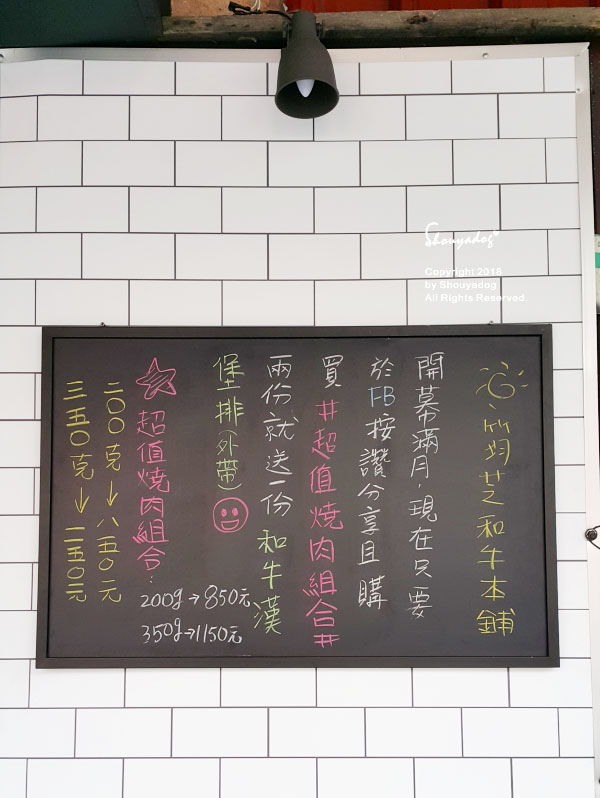 筠芝和牛本鋪
開幕滿月，現在只要
於FB按讚分享且購
買#超值燒肉組合#
兩份就送一份 和牛漢
堡排外帶
超值燒肉組合：
二〇〇克→八五〇元
三五〇克→一一五〇元
200g→850元
350g→1150元
Shouyadog
Copyright 2018
by Shouyadog
All Rights Reserved.